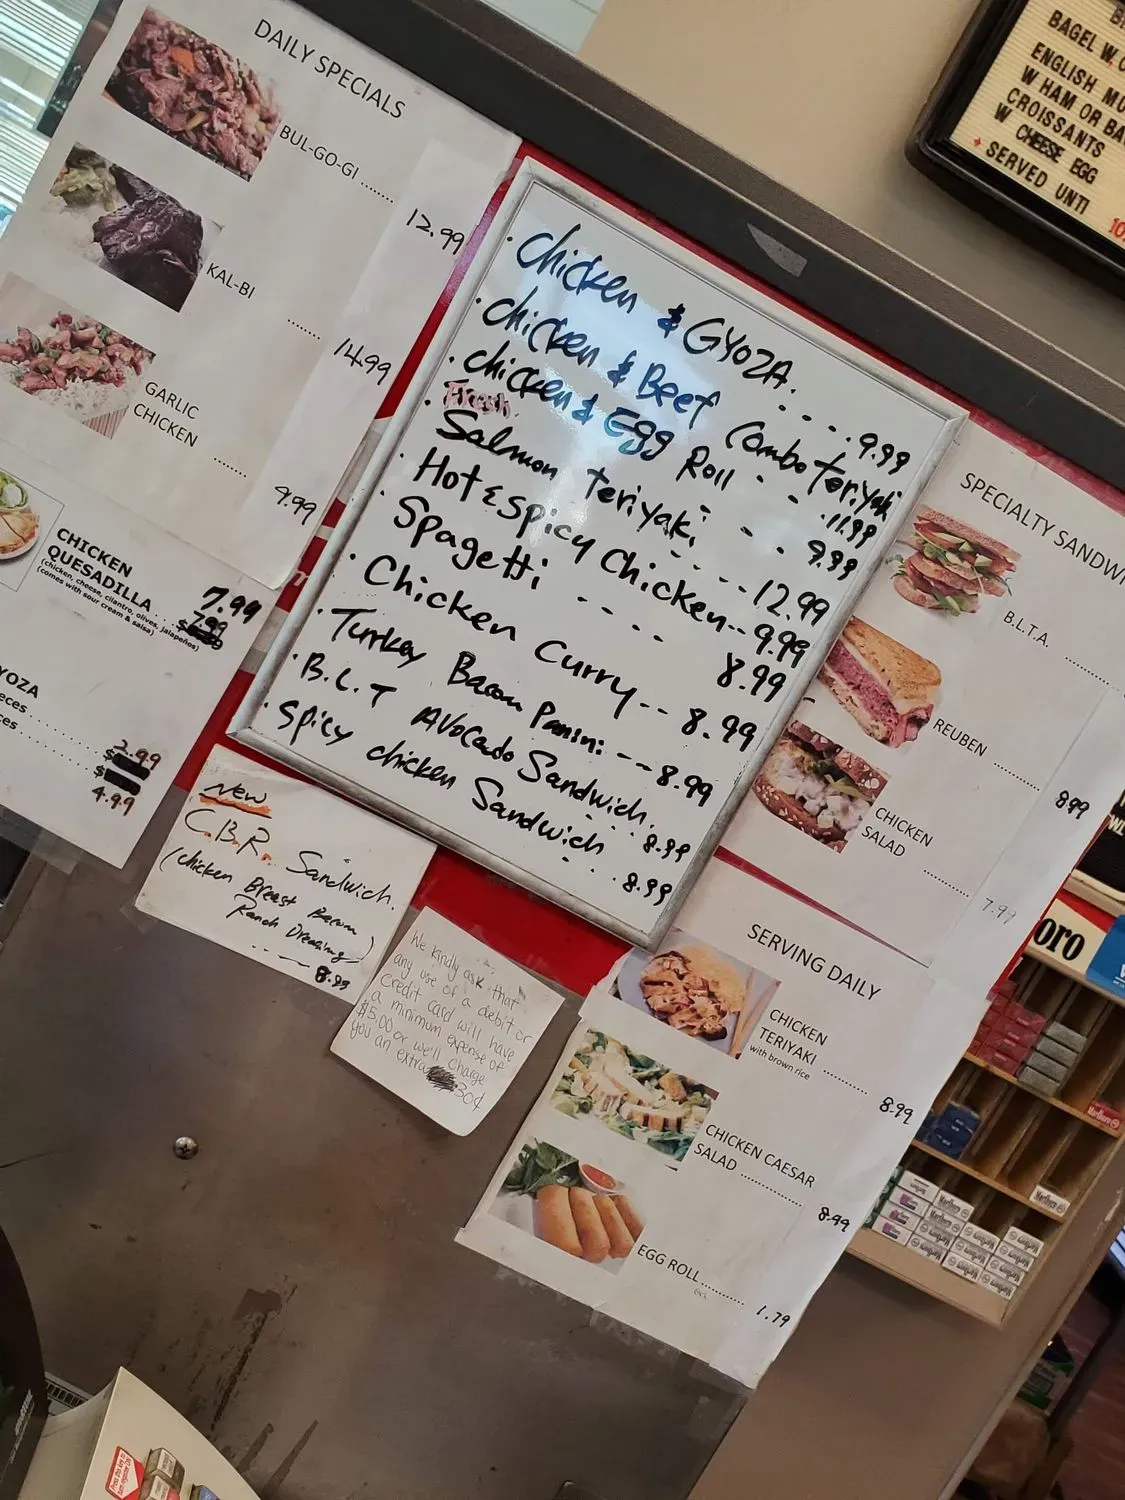 DAILY SPECIALS
BUL-GO-GI ......
12.99
KAL-BI
......
14.99
GARLIC
CHICKEN ......
9.99
CHICKEN
QUESADILLA ....
7.99
(chicken, cheese, cilantro, olives, jalapeños)
(comes with sour cream & salsa)
YOZA
eces
ces
3.99
$
$
4.99
· Chicken & GYOZA. - - - - 9.99
· Chicken & Beef Combo Teriyaki
11.99
· Chicken & Egg Roll - - - - 9.99
Fresh
· Salmon Teriyaki - - - - 12.99
· Hot & Spicy Chicken -- 9.99
· Spagetti - - - - 8.99
· Chicken Curry -- 8.99
· Turkey Bacon Panini -- 8.99
· B.L.T Avocado Sandwich.
8.99
· Spicy chicken Sandwich
.... 8.99
NEW
C.B.R. Sandwich.
(Chicken Breast Bacon
Ranch Dressing)
---- 8.99
We kindly ask that
any use of a debit or
credit card will have
a minimum expense of
$5.00 or we'll charge
you an extra 30¢
SPECIALTY SANDWI
B.L.T.A. ......
REUBEN ......
8.99
CHICKEN
SALAD ......
7.99
SERVING DAILY
CHICKEN
TERIYAKI ......
with brown rice
8.99
CHICKEN CAESAR
SALAD ......
8.99
EGG ROLL ......
ea.
1.79
BAGEL W.
ENGLISH MU
W HAM OR BA
CROISSANTS
W CHEESE EGG
SERVED UNTI
10
oro
Marlboro